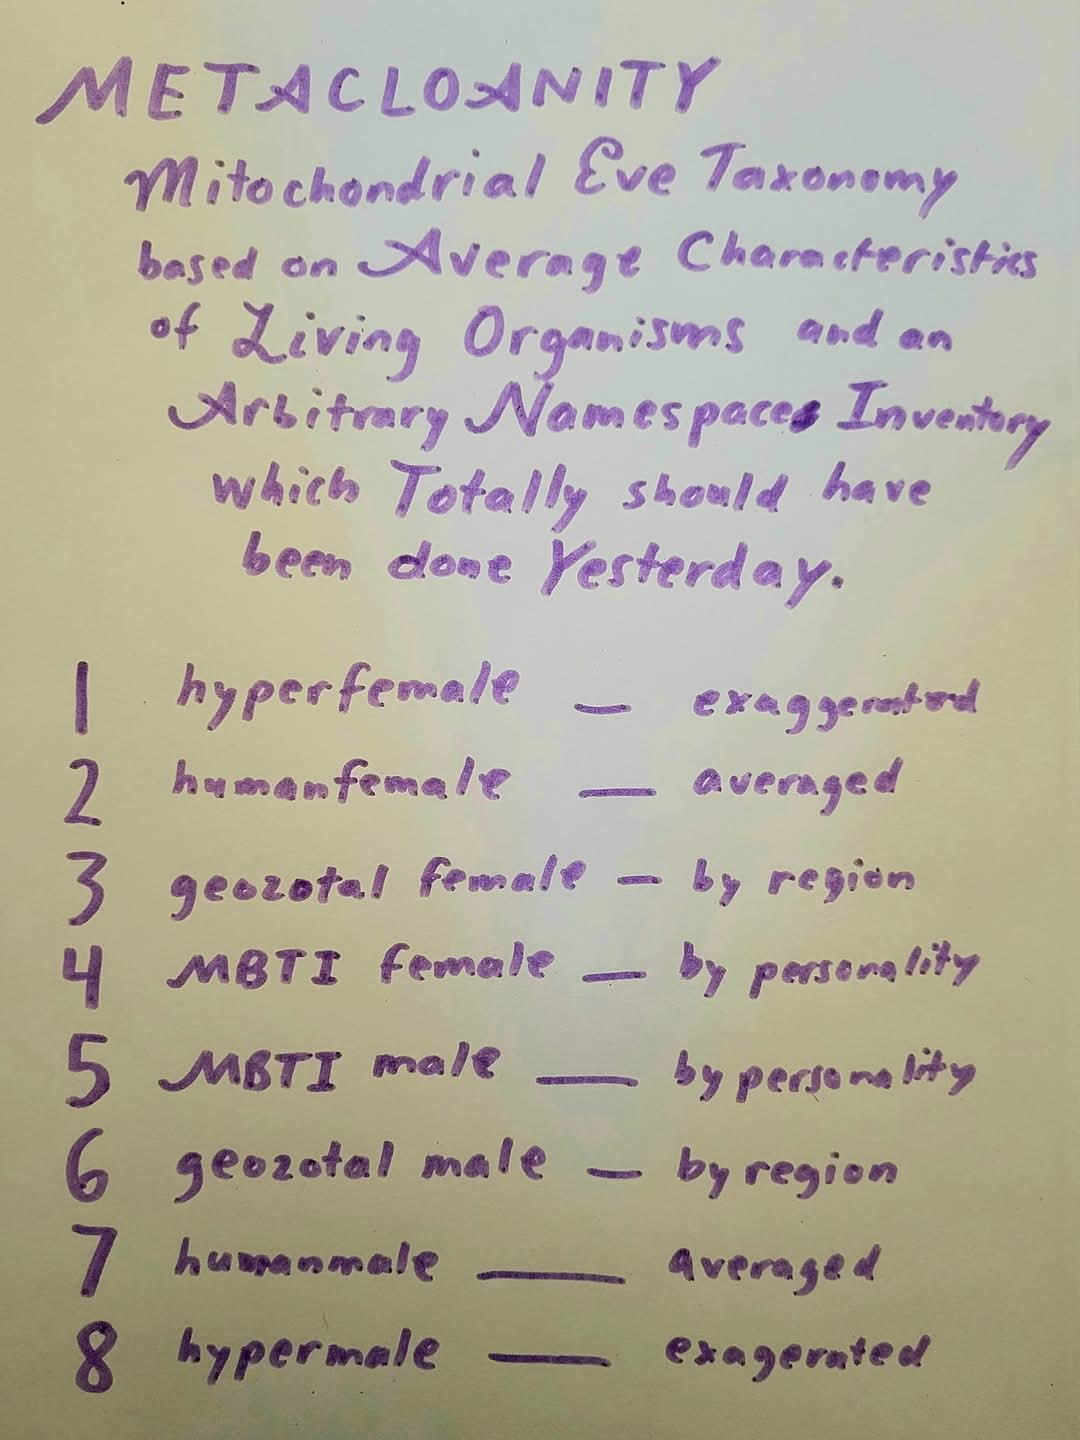 METACLOANITY
Mitochondrial Eve Taxonomy
based on Average Characteristics
of Living Organisms and an
Arbitrary Namespaces Inventory
which Totally should have
been done Yesterday.
1 hyperfemale — exaggerated
2 humanfemale — averaged
3 geozotal female — by region
4 MBTI female — by personality
5 MBTI male — by personality
6 geozotal male — by region
7 humanmale — averaged
8 hypermale — exagerated